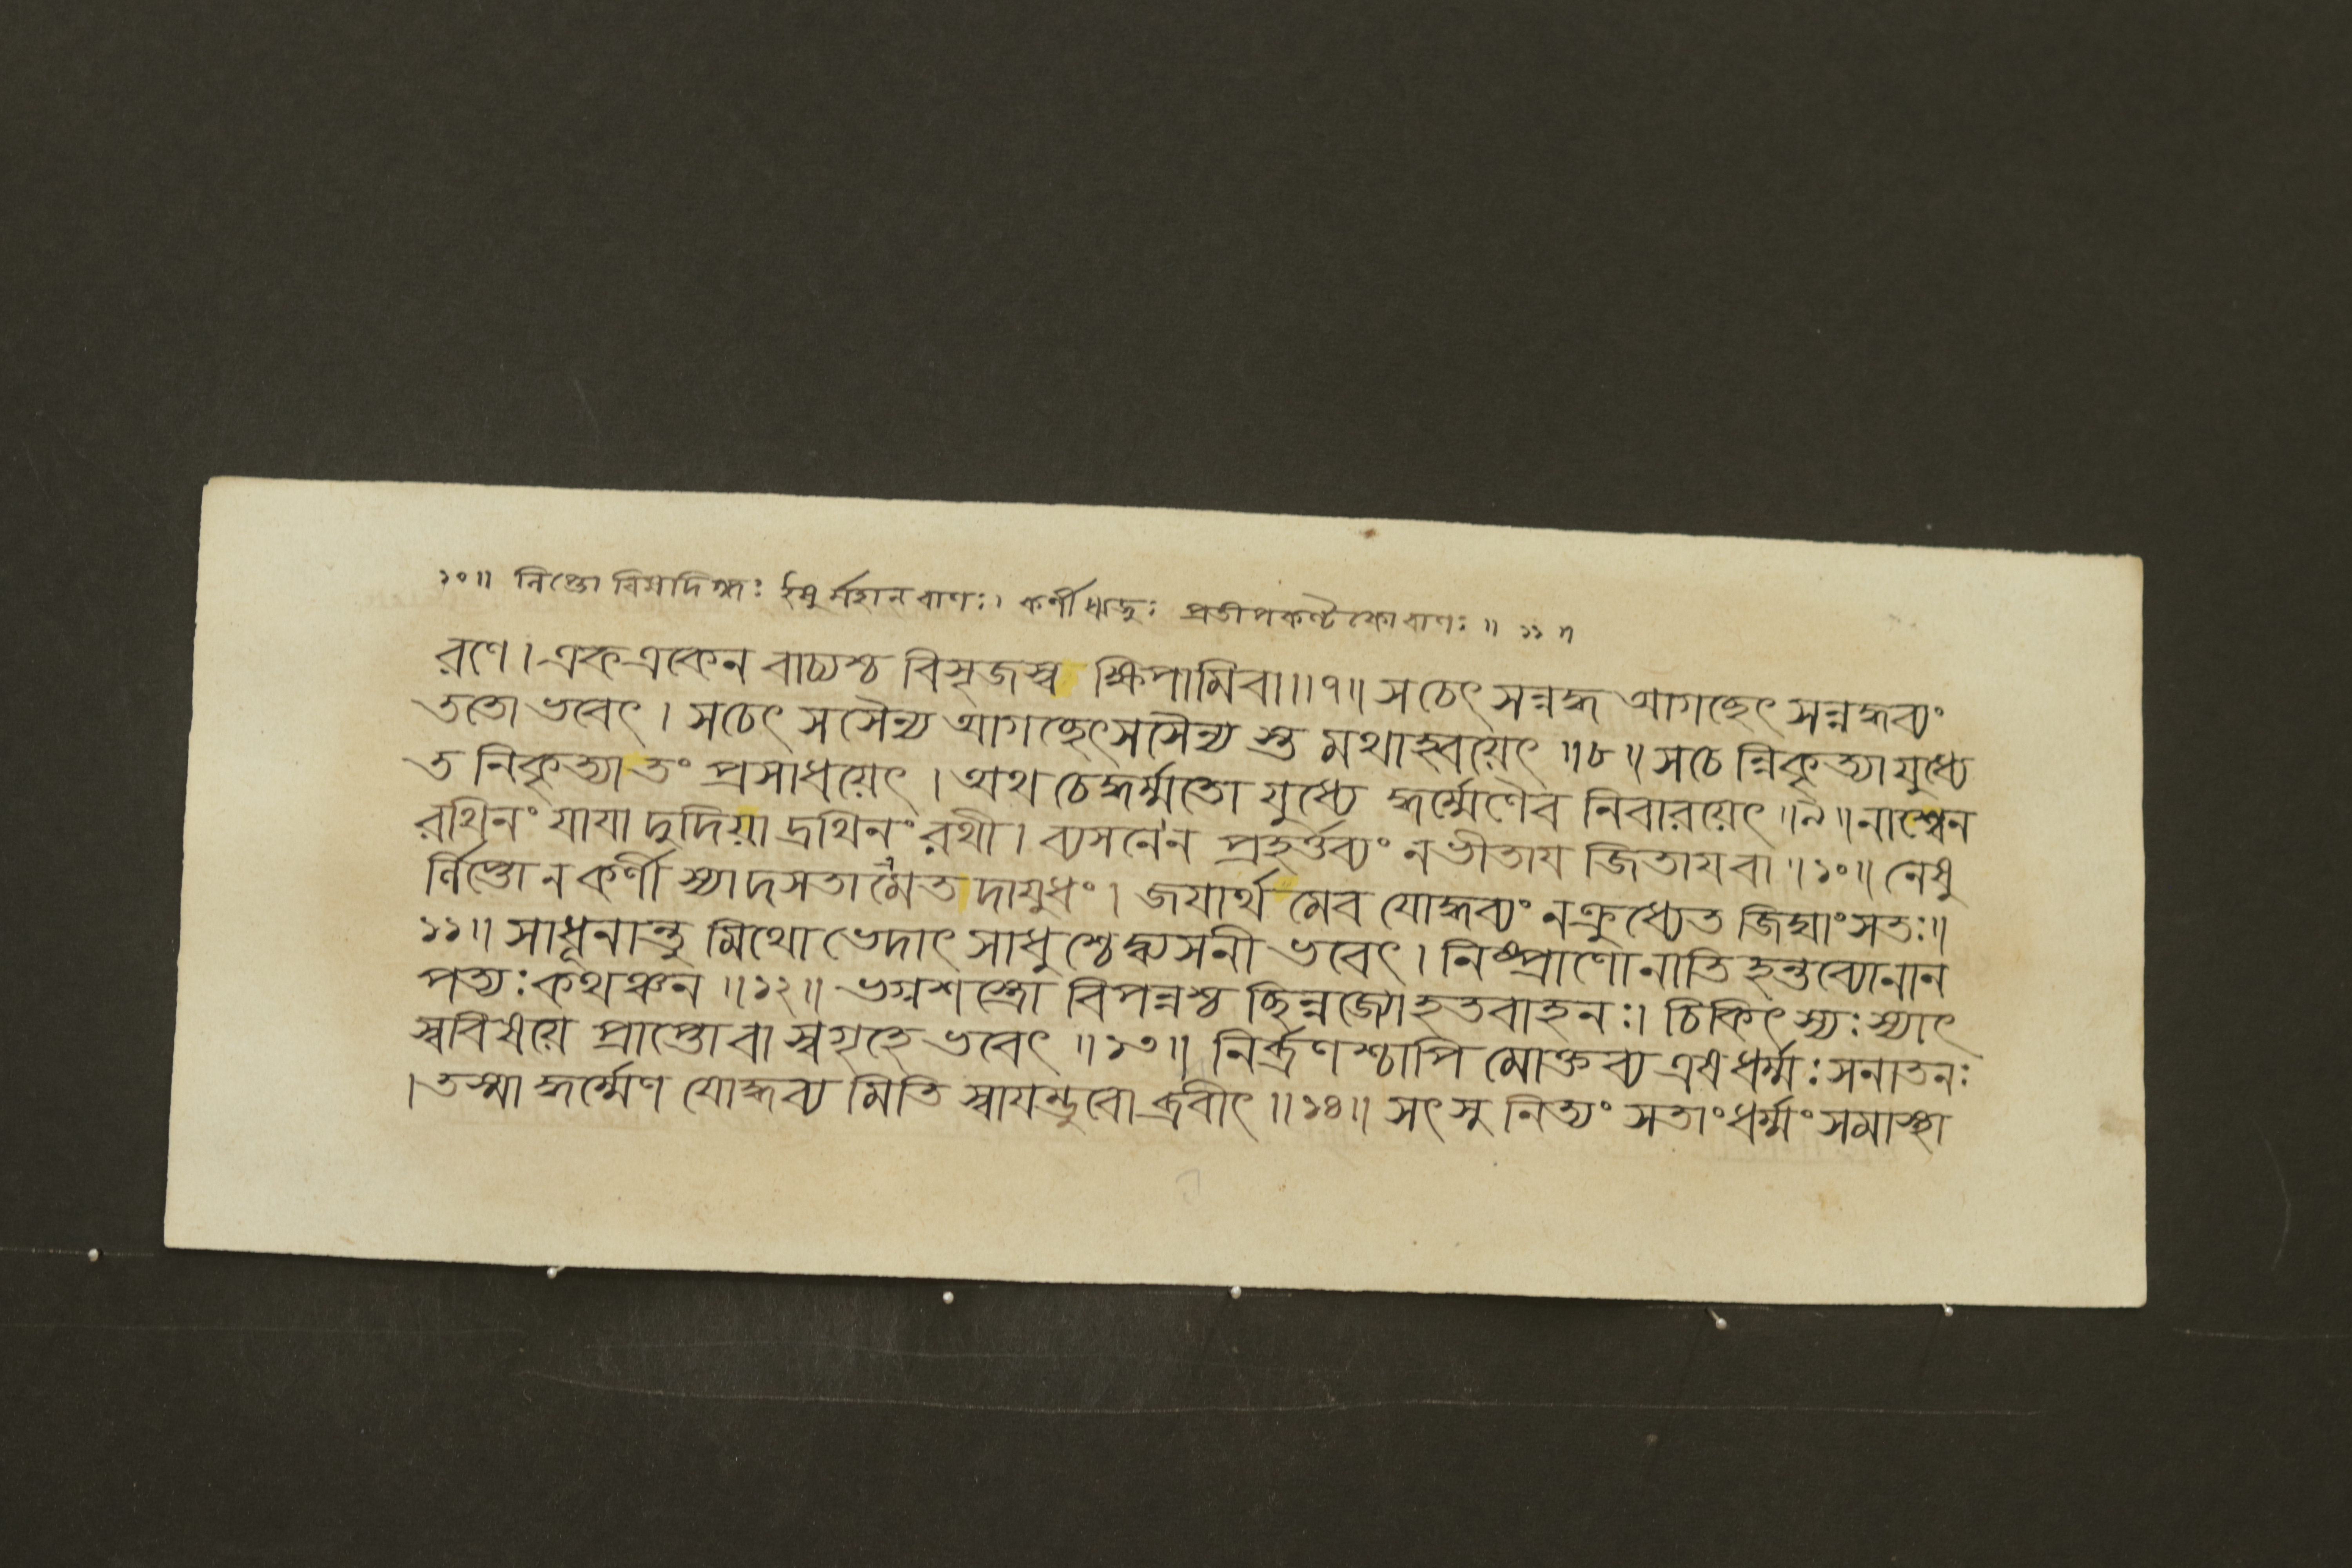 ১০॥ লিপ্তো বিষদিগ্ধঃ ইষু র্নহানবাণঃ। কর্ণী ঋজুঃ প্রতীপকণ্টকোবাণঃ॥ ১১॥
রণে। এক একেন বাচ্যশ্চ বিসৃজস্ব ক্ষিপামিবা॥ ৭॥ সচেৎ সন্নদ্ধ আগচ্ছেৎ সন্নদ্ধব্যং
ততো ভবেৎ। সচেৎ সসৈন্য আগচ্ছেৎসসৈন্য স্তু মথাহ্বয়েৎ॥ ৮॥ সচে ন্নিকৃত্যা যুধ্যে
ত নিকৃত্যা তং প্রসাধয়েৎ। অথ চেদ্ধর্ম্মতো যুধ্যে দ্ধর্ম্মেণৈব নিবারয়েৎ॥ ৯॥ নাশ্বেন
রথিনং যাযা দুদিয়া দ্রথিনং রথী। ব্যসনেন প্রহর্ত্তব্যং নভীতায জিতাযবা॥ ১০॥ নেষু
র্ল্লিপ্তো নকর্ণী স্যা দসতামেত দাযুধং। জযার্থ মেব যোদ্ধব্যং নক্রুধ্যেত জিঘাংসতঃ॥
১১॥ সাধূনান্তু মিথো ভেদাৎ সাধুশ্চেদ্ব্যসনী ভবেৎ। নিষ্প্রাণোনাতি হন্তব্যোনান
পত্যঃ কথঞ্চন॥ ১২॥ ভগ্নশস্ত্রো বিপন্নশ্চ চ্ছিন্নজ্যোহতবাহনঃ। চিকিৎস্যঃ স্যাৎ
স্ববিষয়ে প্রাপ্তোবা স্বগৃহে ভবেৎ॥ ১৩॥ নির্ব্রণশ্চাপি মোক্তব্য এষধর্ম্মঃ সনাতনঃ
। তস্মা দ্ধর্ম্মেণ যোদ্ধব্য মিতি স্বাযম্ভুবো ব্রবীৎ॥ ১৪॥ সৎসু নিত্যং সতাংধর্ম্মং সমাস্থা